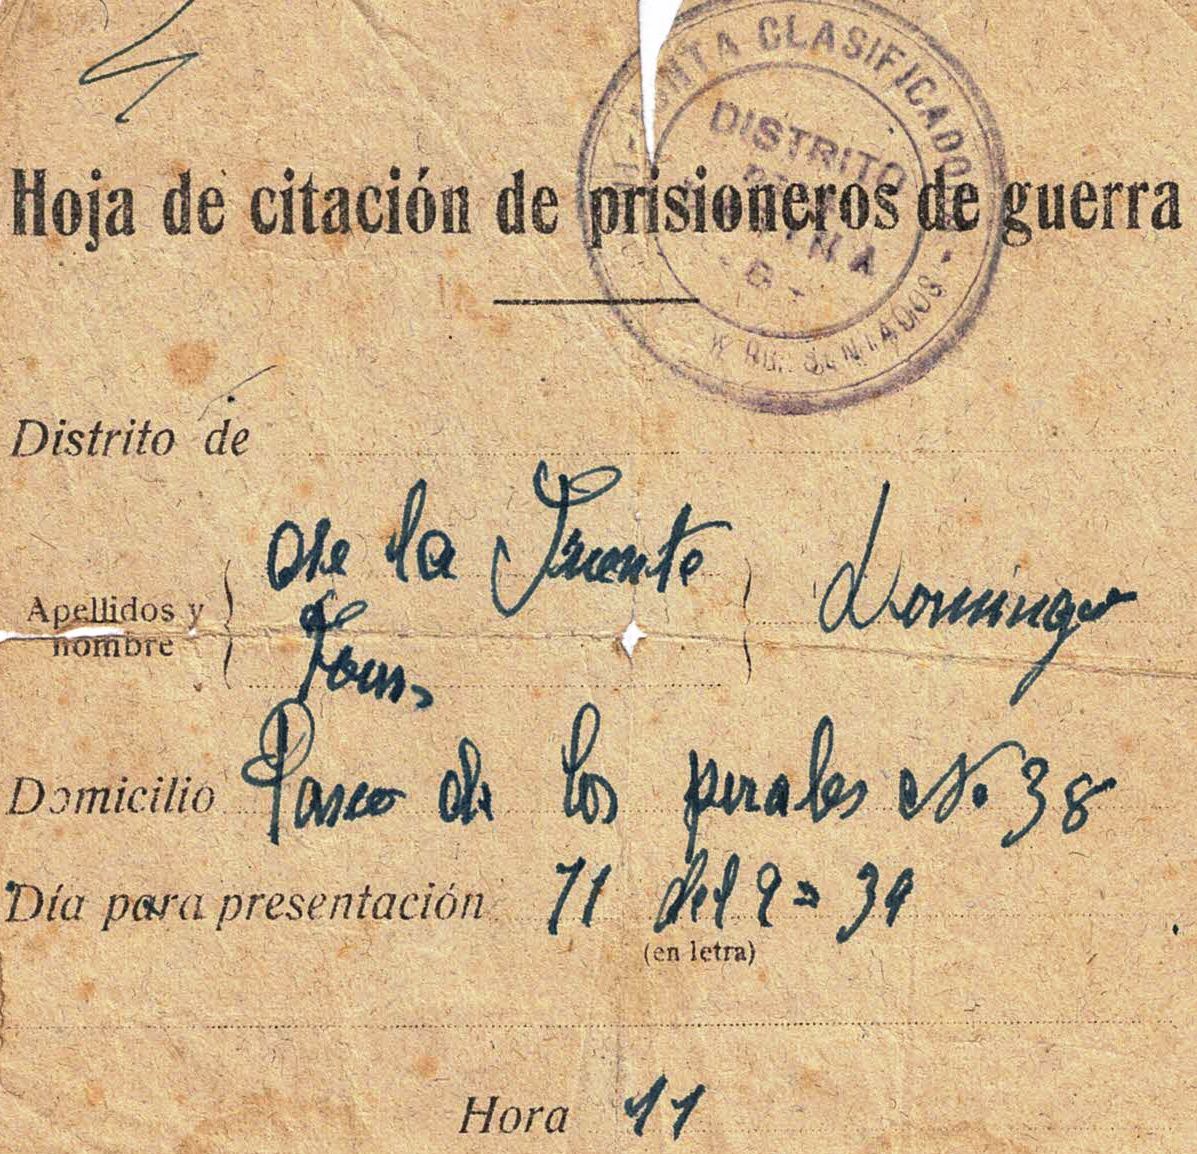 JUNTA CLASIFICADO
DISTRITO
Hoja de citación de prisioneros de guerra
Distrito de
de la Fuente
Apellidos y
nombre
Domingo
Domicilio Paseo de los perales No. 38
Día para presentación 11 del 9 = 39
(en letra)
Hora 11